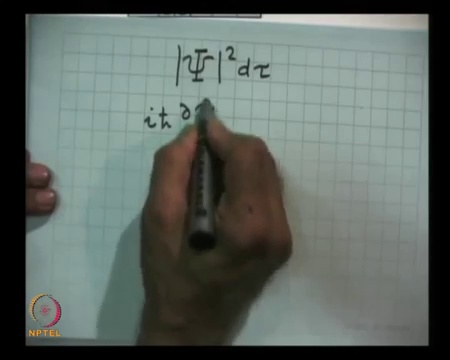 |Ψ|² dτ
iħ ∂
NPTEL